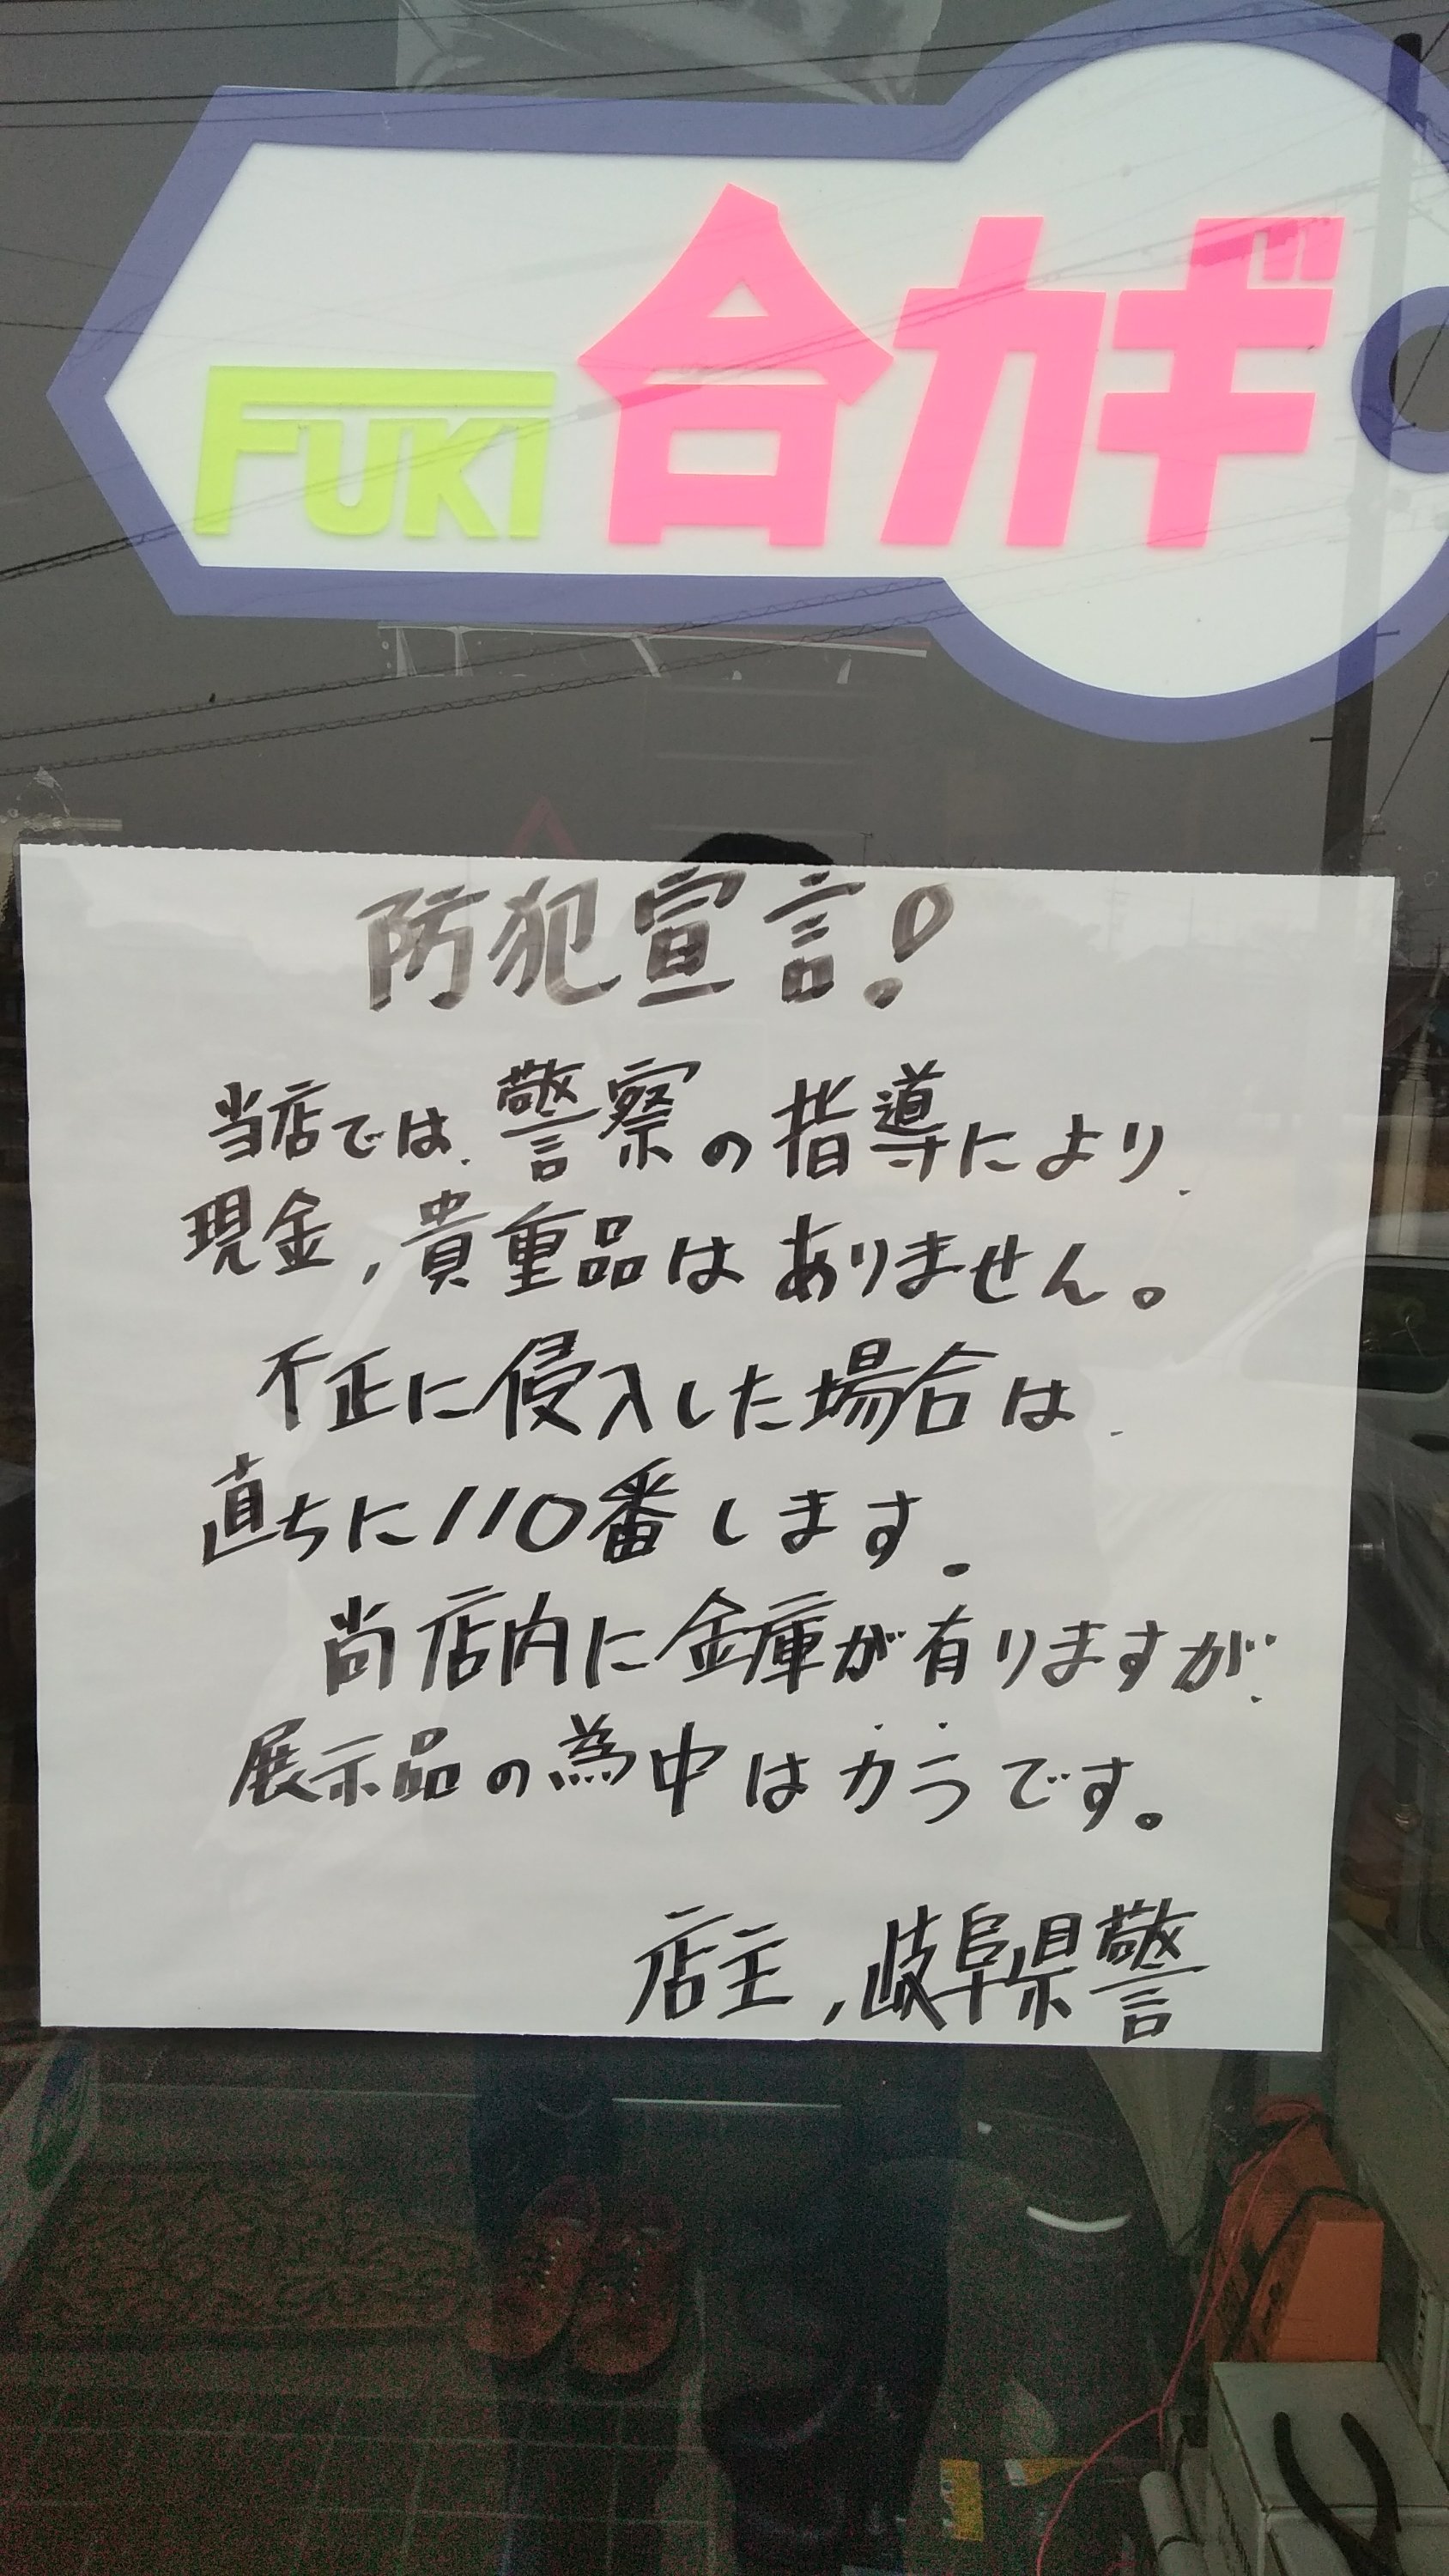 FUKI 合カギ
防犯宣言!
当店では、警察の指導により、
現金,貴重品はありません。
不正に侵入した場合は、
直ちに110番します。
尚店内に金庫が有りますが、
展示品の為中はカラです。
店主,岐阜県警